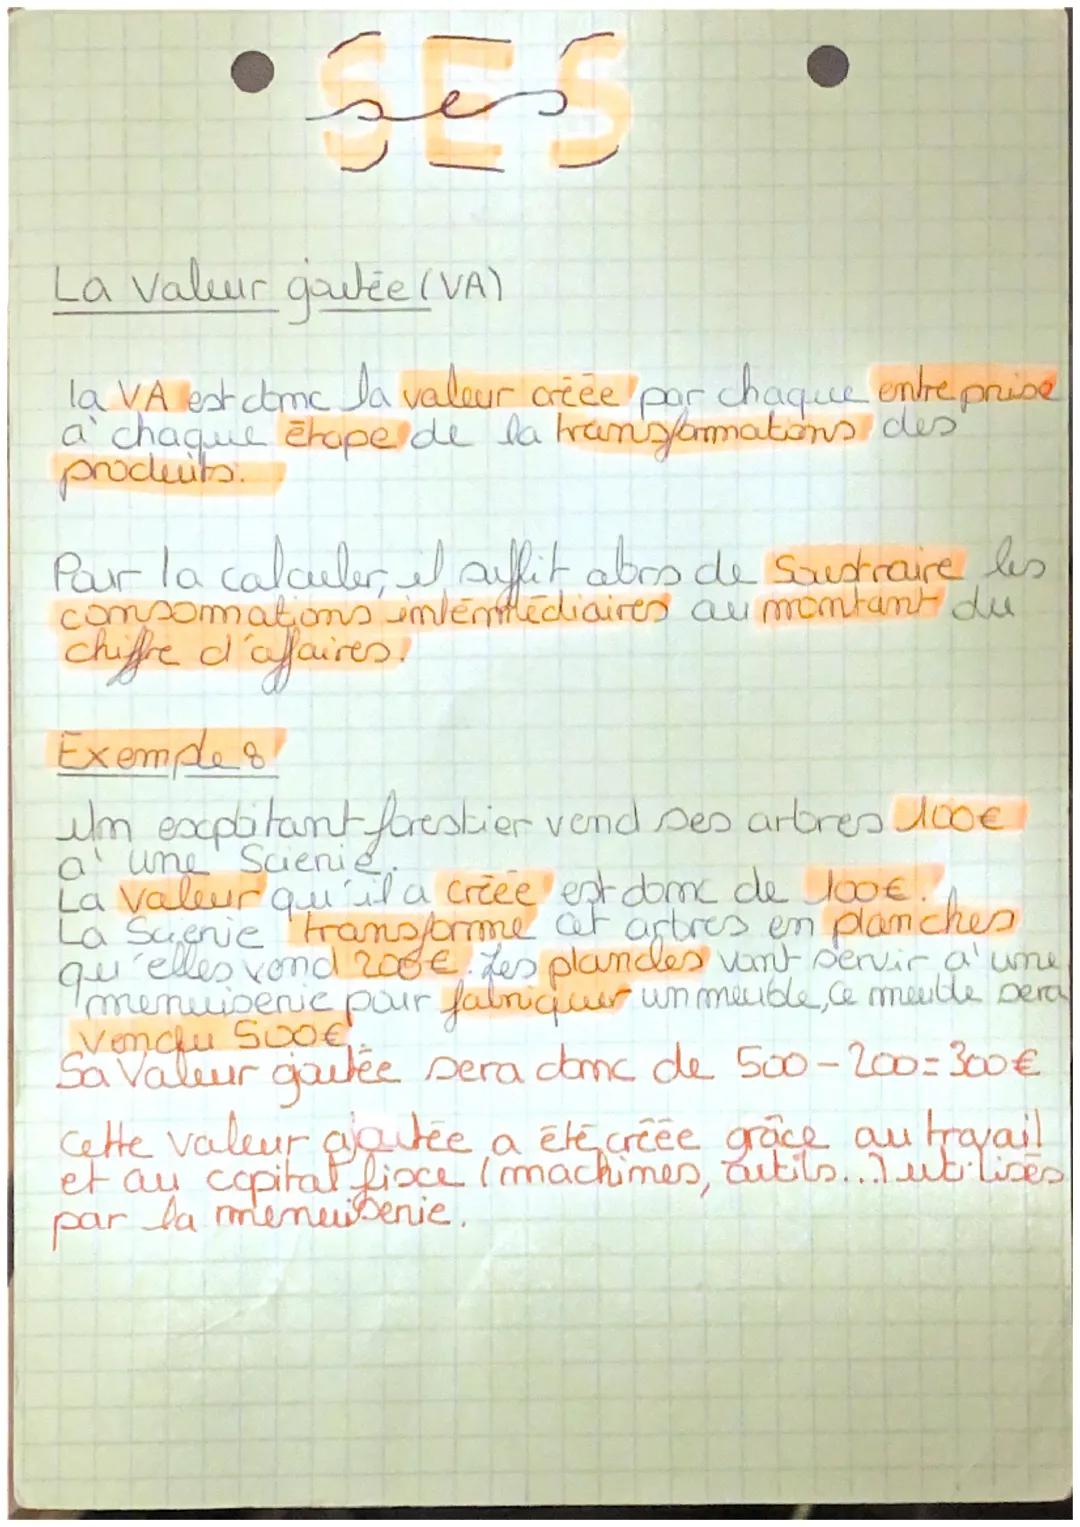 SES
ses
La Valeur ajoutée (VA)
la VA est donc la valeur créée par chaque entreprise
à chaque étape de la transformations des
produits.
Pour la calculer, il suffit alors de Soustraire les
consommations intermédiaires au montant du
chiffre d'affaires.
Exemple :
Un exploitant forestier vend ses arbres 100€
à une Scierie.
La valeur qu'il a créée est donc de 100€.
La Scierie transforme cet arbres en planches
qu'elles vend 200€. Les planches vont servir à une
menuiserie pour fabriquer un meuble, ce meuble sera
Vendu 500€.
Sa Valeur ajoutée sera donc de 500-200=300€
Cette valeur ajoutée a été créée grâce au travail
et au capital fixe (machines, outils...) utilisés
par la menuiserie.